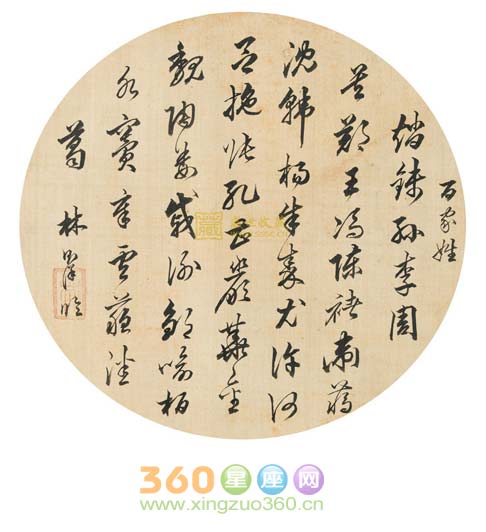 百家姓
趙錢孫李周
吴鄭王馮陳褚衛蔣
沈韓楊朱秦尤許何
吕施張孔曹嚴華金
魏陶姜戚謝鄒喻柏
水竇章雲蘇潘
葛 林
360星座网
www.xingzuo360.cn